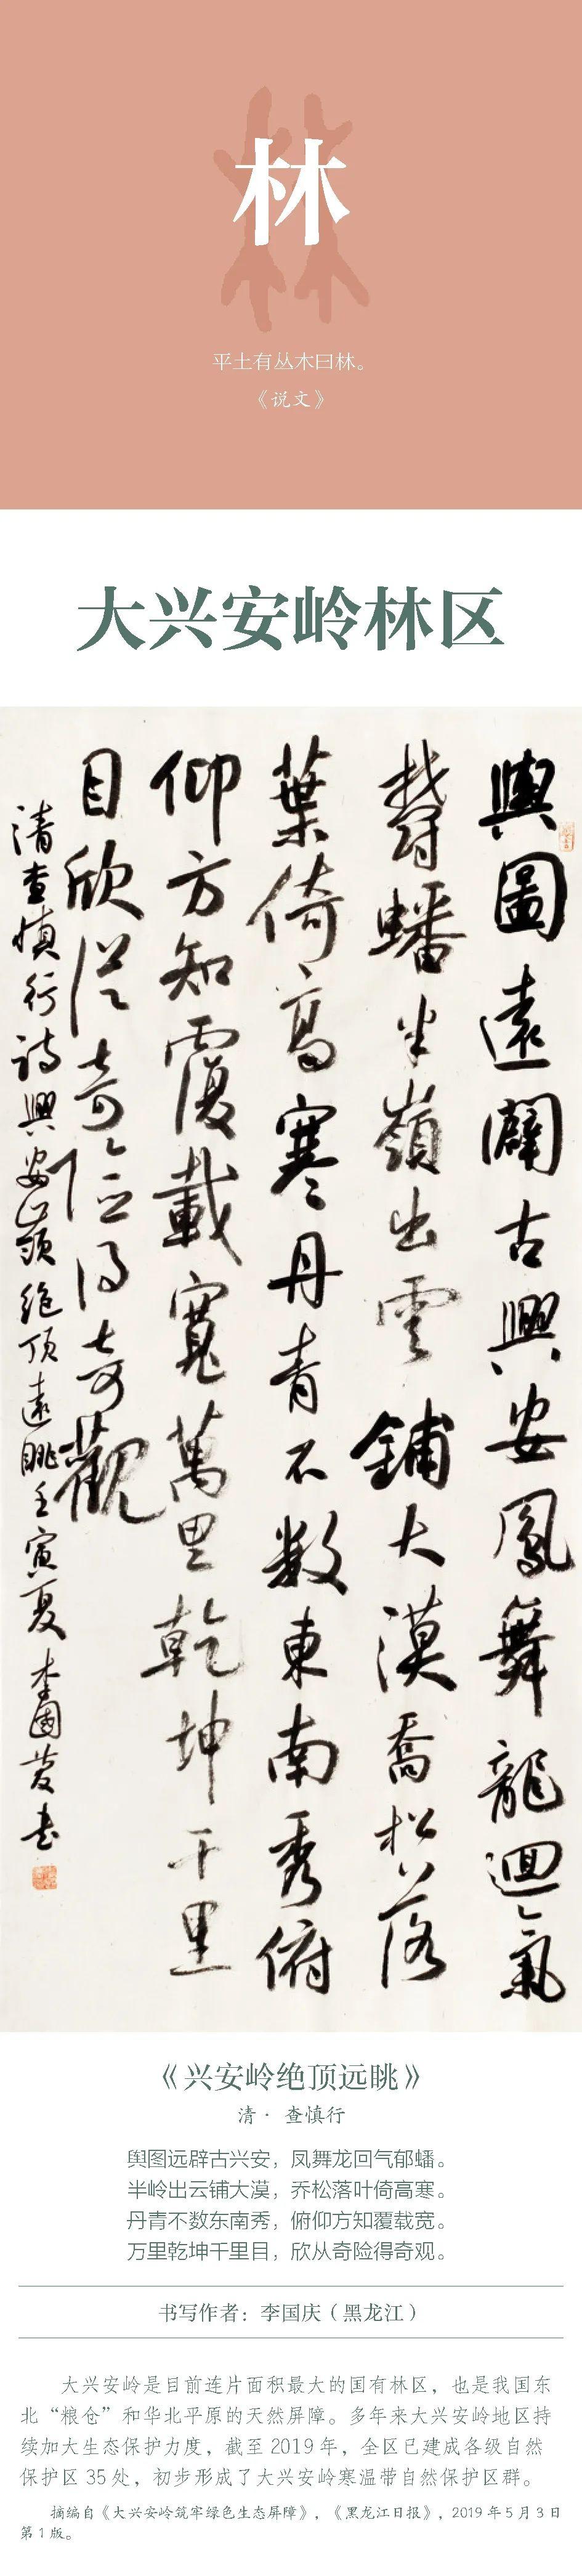 林
平土有丛木曰林。
《说文》
大兴安岭林区
輿圖遠闢古興安鳳舞龍迴氣
鬱蟠半嶺出雲鋪大漠喬松落
葉倚高寒丹青不数東南秀俯
仰方知覆載寬萬里乾坤千里
目欣從奇險得奇觀
清查慎行詩興安嶺絶頂遠眺壬寅夏李國慶書
《兴安岭绝顶远眺》
清· 查慎行
舆图远辟古兴安，凤舞龙回气郁蟠。
半岭出云铺大漠，乔松落叶倚高寒。
丹青不数东南秀，俯仰方知覆载宽。
万里乾坤千里目，欣从奇险得奇观。
书写作者：李国庆（黑龙江）
大兴安岭是目前连片面积最大的国有林区，也是我国东
北“粮仓”和华北平原的天然屏障。多年来大兴安岭地区持
续加大生态保护力度，截至 2019 年，全区已建成各级自然
保护区 35 处，初步形成了大兴安岭寒温带自然保护区群。
摘编自《大兴安岭筑牢绿色生态屏障》，《黑龙江日报》，2019 年 5 月 3 日
第 1 版。